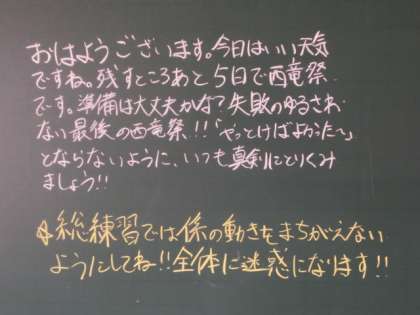 おはようございます。今日はいい天気
ですね。残すところあと5日で西竜祭
です。準備は大丈夫かな?失敗のゆるされ
ない最後の西竜祭!!「やっとけばよかった〜」
とならないように、いつも真剣にとりくみ
ましょう!!
☆総練習では係の動きをまちがえない
ようにしてね!!全体に迷惑になります!!